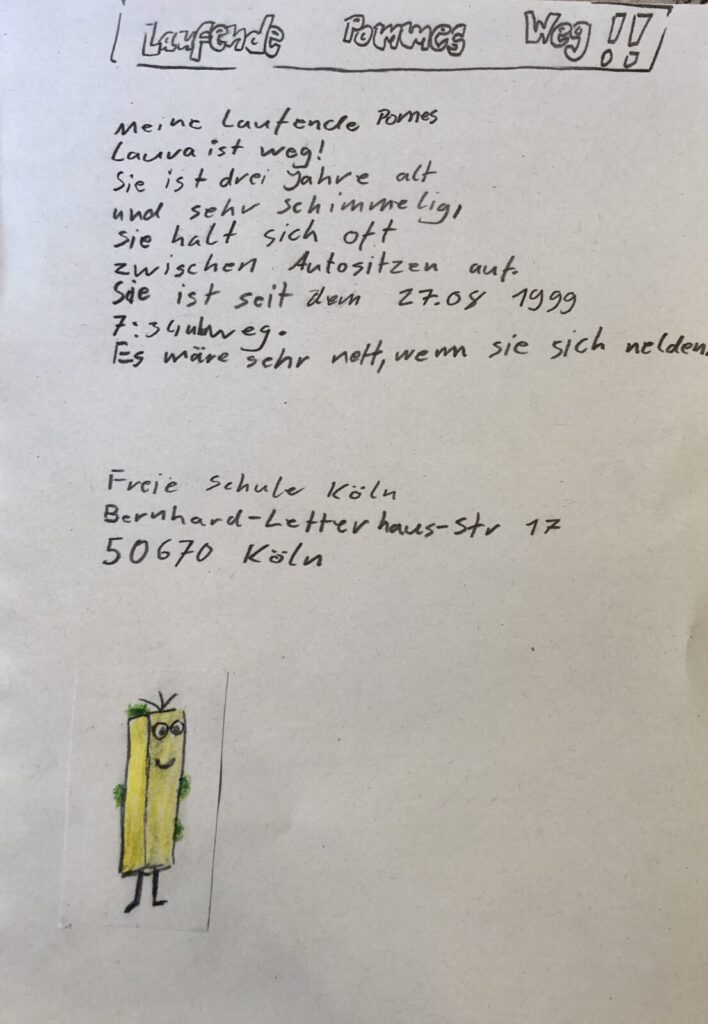 Laufende Pommes Weg!!
Meine Laufende Pomes
Laura ist weg!
Sie ist drei Jahre alt
und sehr schimmelig,
sie halt sich oft
zwischen Autositzen auf.
Sie ist seit dem 27.08 1999
7:34uhrweg.
Es märe sehr nett, wenn sie sich nelden.
Freie Schule Köln
Bernhard-Letterhaus-Str 17
50670 Köln